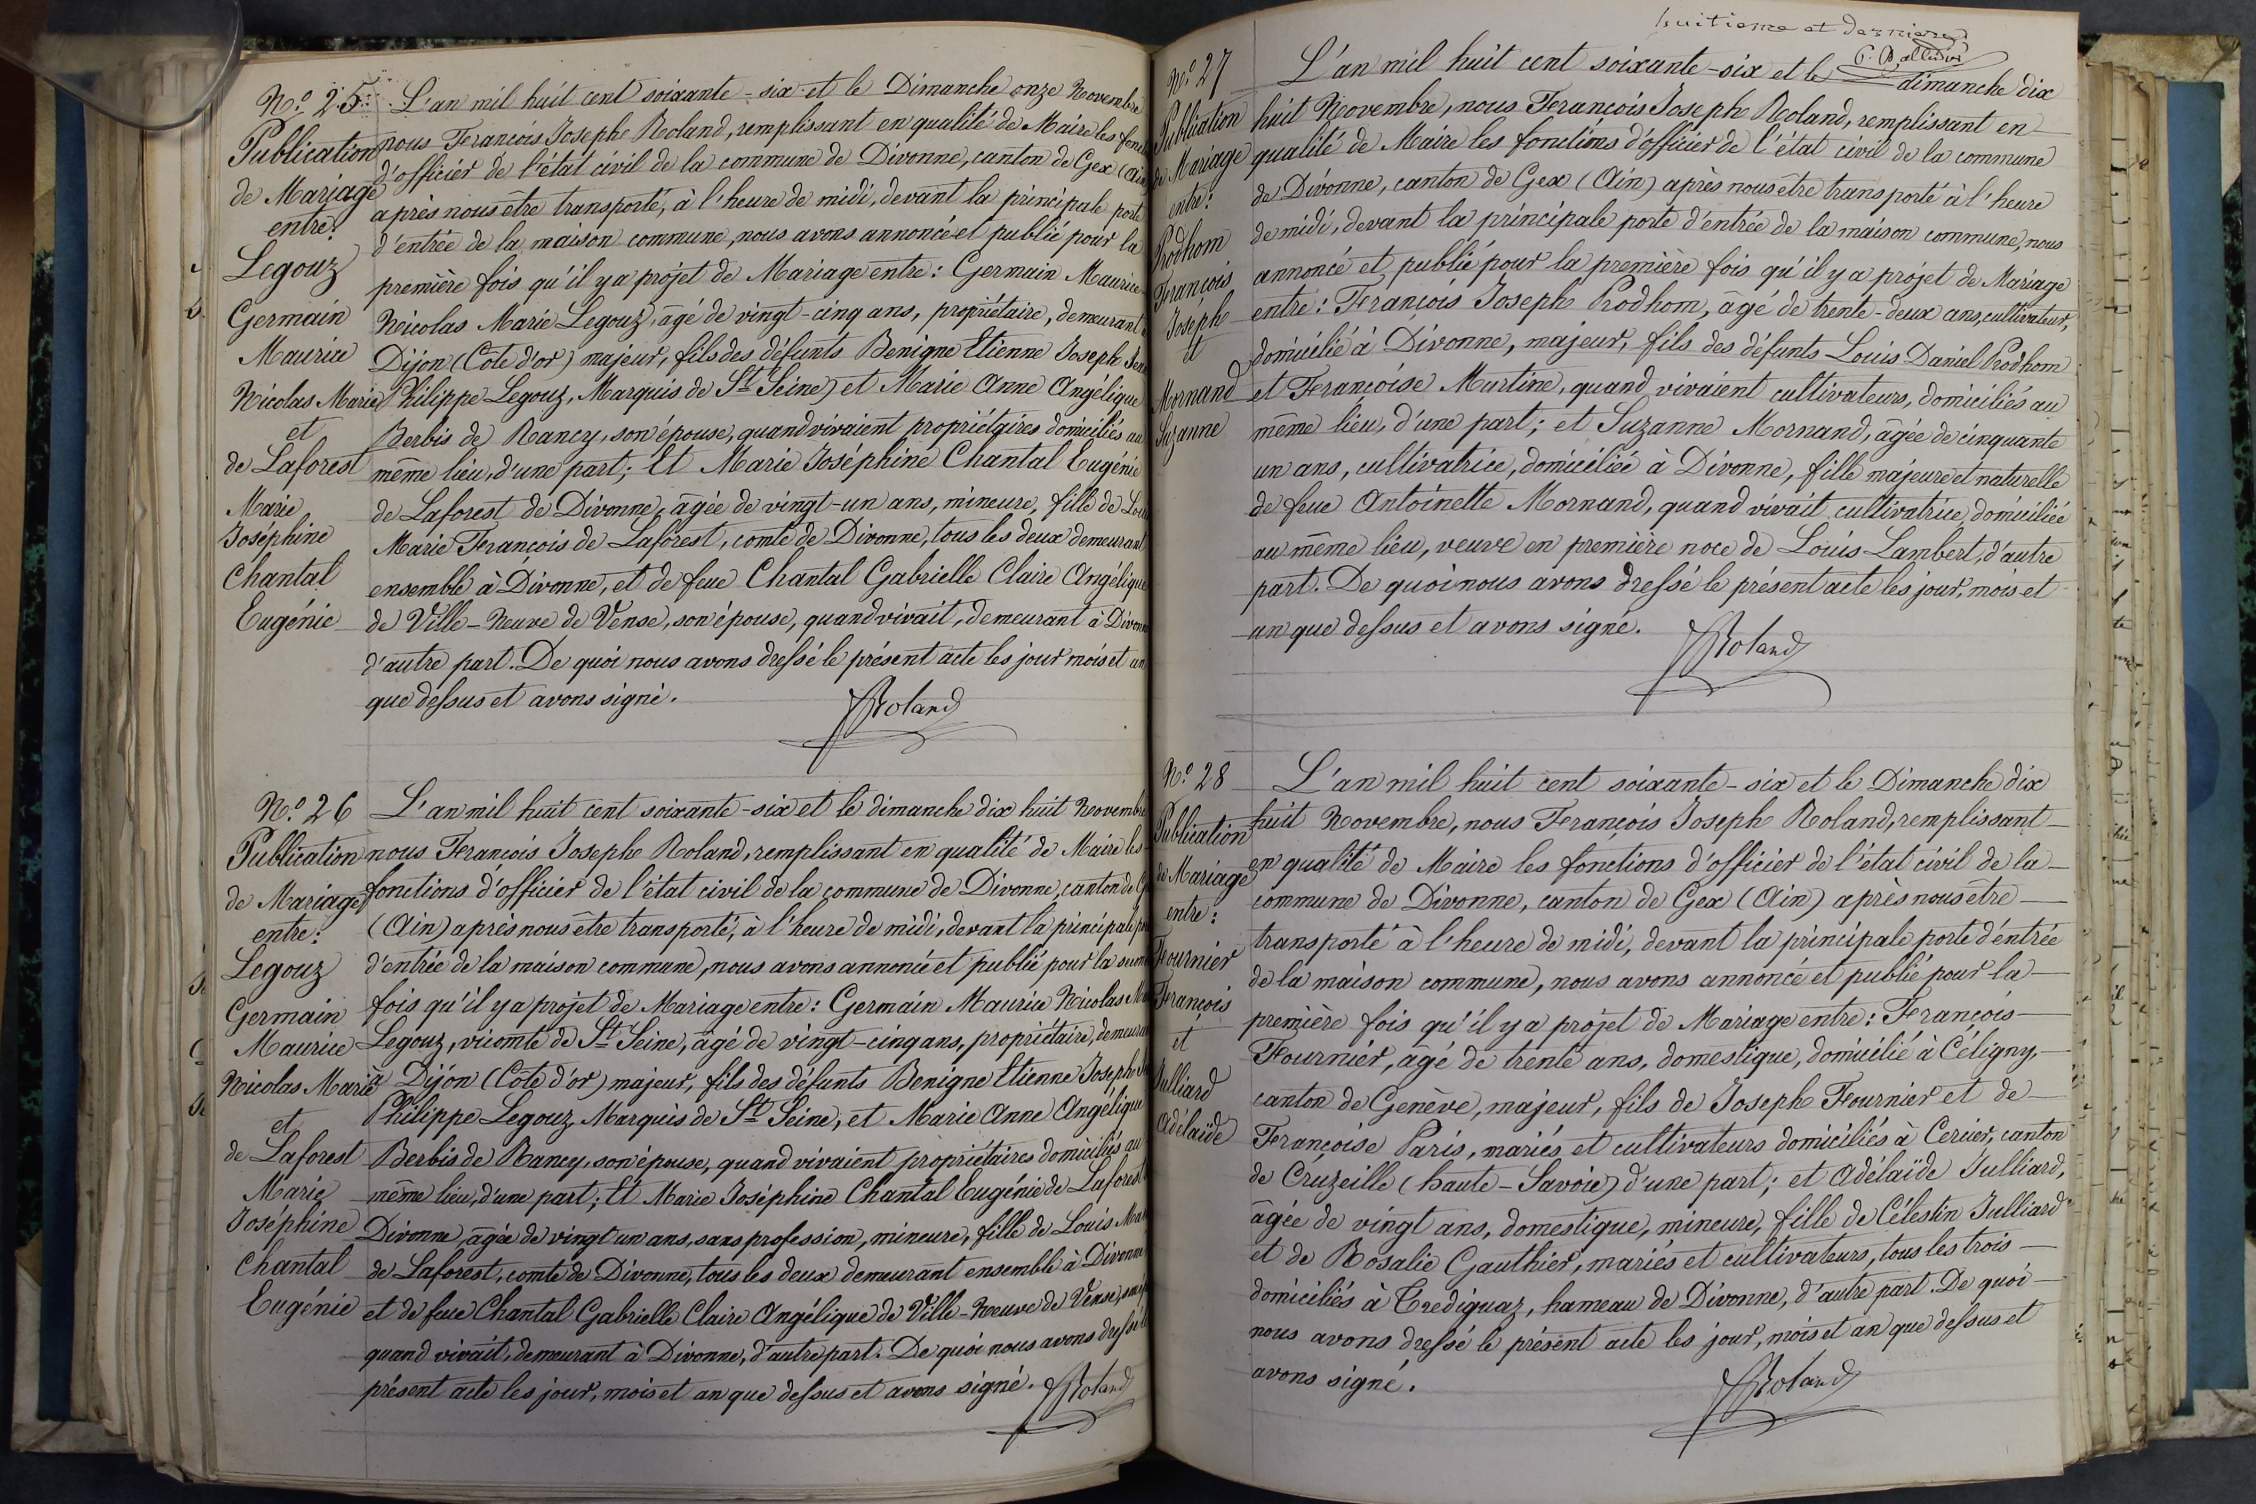 N.º 25
Publication
de Mariage
entre:
Legouz
Germain
Maurice
Nicolas Marie
et
de Laforest
Marie
Joséphine
Chantal
Eugénie
L'an mil huit cent soixante-six et le Dimanche onze Novembre
nous François Joseph Roland, remplissant en qualité de Maire les
d'officier de l'état civil de la commune de Divonne, canton de Gex (Ain
après nous être transporté, à l'heure de midi, devant la principale porte
d'entrée de la maison commune, nous avons annoncé et publié pour la
première fois qu'il y a projet de Mariage entre: Germain Maurice
Nicolas Marie Legouz, âgé de vingt-cinq ans, propriétaire, demeurant
Dijon (Côte d'or) majeur, fils des défunts Benigne Etienne Joseph
Philippe Legouz, Marquis de St Seine) et Marie Anne Angélique
Berbis de Rancy, son épouse, quand vivaient propriétaires domiciliés au
même lieu, d'une part; Et Marie Joséphine Chantal Eugénie
de Laforest de Divonne, âgée de vingt-un ans, mineure, fille de
Marie François de Laforest, comte de Divonne, tous les deux demeurant
ensemble à Divonne, et de feue Chantal Gabrielle Claire Angélique
de Ville-Neuve de Vense, son épouse, quand vivait, demeurant à Divonne
d'autre part. De quoi nous avons dressé le présent acte les jour mois et an
que dessus et avons signé.
Roland
N.º 26
Publication
de Mariage
entre:
Legouz
Germain
Maurice
Nicolas Marie
et
de Laforest
Marie
Joséphine
Chantal
Eugénie
L'an mil huit cent soixante-six et le dimanche dix huit Novembre
nous François Joseph Roland, remplissant en qualité de Maire les
fonctions d'officier de l'état civil de la commune de Divonne, canton de
(Ain) après nous être transporté, à l'heure de midi, devant la principale
d'entrée de la maison commune, nous avons annoncé et publié pour la
fois qu'il y a projet de Mariage entre: Germain Maurice Nicolas
Legouz, vicomte de St Seine, âgé de vingt-cinq ans, propriétaire, demeurant
à Dijon (Côte d'or) majeur, fils des défunts Benigne Etienne Joseph
Philippe Legouz, Marquis de St Seine, et Marie Anne Angélique
Berbis de Rancy, son épouse, quand vivaient propriétaires domiciliés au
même lieu, d'une part; Et Marie Joséphine Chantal Eugénie de Laforest
Divonne, âgée de vingt un ans, sans profession, mineure, fille de Louis
de Laforest, comte de Divonne, tous les deux demeurant ensemble à Divonne
et de feue Chantal Gabrielle Claire Angélique de Ville-Neuve de Vense,
quand vivait, demeurant à Divonne, d'autre part. De quoi nous avons dressé
présent acte les jour, mois et an que dessus et avons signé.
Roland
huitieme et dernier
N.º 27
Publication
de Mariage
entre:
Prodhom
François
Joseph
et
Mornand
Suzanne
L'an mil huit cent soixante-six et le dimanche dix
huit Novembre, nous François Joseph Roland, remplissant en
qualité de Maire les fonctions d'officier de l'état civil de la commune
de Divonne, canton de Gex (Ain) après nous être transporté à l'heure
de midi, devant la principale porte d'entrée de la maison commune, nous
annoncé et publié pour la première fois qu'il y a projet de Mariage
entre: François Joseph Prodhom, âgé de trente-deux ans, cultivateur,
domicilié à Divonne, majeur, fils des défunts Louis Daniel Prodhom
et Françoise Murtine, quand vivaient cultivateurs, domiciliés au
même lieu, d'une part; et Suzanne Mornand, âgée de cinquante
un ans, cultivatrice, domiciliée à Divonne, fille majeure et naturelle
de feue Antoinette Mornand, quand vivait cultivatrice, domiciliée
au même lieu, veuve en première noce de Louis Lambert, d'autre
part. De quoi nous avons dressé le présent acte les jour, mois et
an que dessus et avons signé.
Roland
N.º 28
Publication
de Mariage
entre:
Fournier
François
et
Julliard
Adélaïde
L'an mil huit cent soixante-six et le Dimanche dix
huit Novembre, nous François Joseph Roland, remplissant
en qualité de Maire les fonctions d'officier de l'état civil de la
commune de Divonne, canton de Gex (Ain) après nous être
transporté à l'heure de midi, devant la principale porte d'entrée
de la maison commune, nous avons annoncé et publié pour la
première fois qu'il y a projet de Mariage entre: François
Fournier, âgé de trente ans, domestique, domicilié à Céligny,
canton de Genève, majeur, fils de Joseph Fournier et de
Françoise Paris, mariés et cultivateurs domiciliés à Cercier, canton
de Cruzeille (haute-Savoie) d'une part; et Adélaïde Julliard,
âgée de vingt ans, domestique, mineure, fille de Célestin Julliard
et de Rosalie Gauthier, mariés et cultivateurs, tous les trois
domiciliés à Crediguaz, hameau de Divonne, d'autre part. De quoi
nous avons dressé le présent acte les jour, mois et an que dessus et
avons signé.
Roland